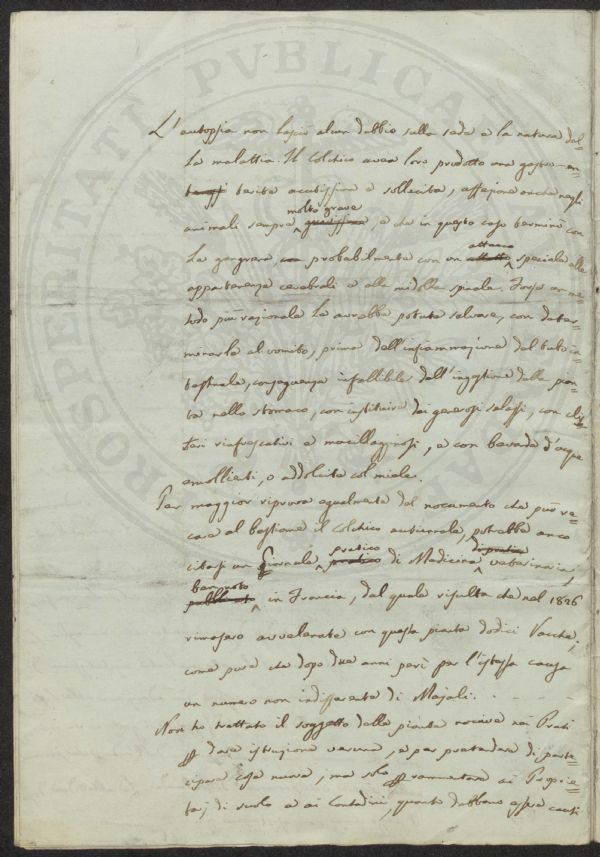 L'autopsia non lasciò alcun dubbio sulla sede e la natura del=
la malattia. Il Colchico avea loro prodotto una gastro-en=
terite acutissima e sollecita, affezione anche negli
molto grave
animali sempre gravissima, e che in questo caso terminò con
attacco
la gangrena, probabilmente con un speciale alle
appartenenze cerebrali e alla midolla spinale. Forse un me=
todo più razionale le avrebbe potute salvare, con deter=
minarle al vomito, prima dell'infiammazione del tubo in=
testinale, conseguenza infallibile dell'ingestione della pian=
ta nello stomaco, con instituire dei generosi salassi, con clis=
teri rinfrescativi e mucillagginosi, e con bevande d'acque
emollienti, o addolcite col miele.
Per maggior riprova egualmente del nocumento che può re=
care al bestiame il Colchico autunnale, potrebbe anco
pratico
citarsi un Giornale pratico di Medicina veterinaria,
pubblicato in Francia, dal quale risulta che nel 1826
rimasero avvelenate con questa pianta dodici Vacche;
come pure che dopo due anni perì per l'istessa causa
un numero non indifferente di Majali.
Non ho trattato il soggetto delle piante nocive nei Prati
dare istruzione veruna, e per pretendere di parte=
cipare cosa nuova, ma solo rammentare ai Proprie=
tarj di suolo e ai Contadini, quanto debbano essere cauti